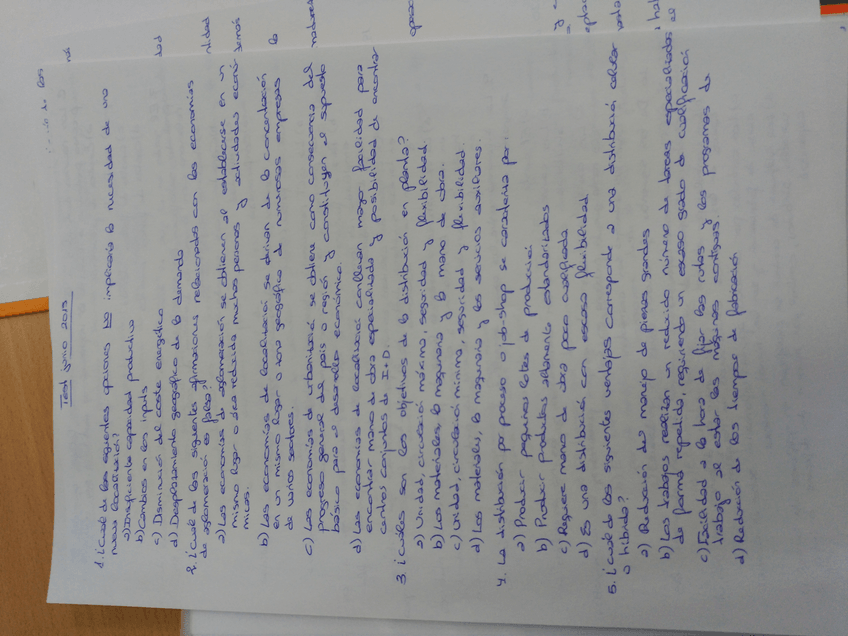 Test junio 2013
1. ¿Cuál de las siguientes opciones NO implicaría la necesidad de una
nueva localización?
a) Insuficiente capacidad productiva
b) Cambios en los inputs
c) Disminución del coste energético
d) Desplazamiento geográfico de la demanda
2. ¿Cuál de las siguientes afirmaciones relacionadas con las economías
de aglomeración es falsa?
a) Las economías de aglomeración se obtienen al establecerse en un
mismo lugar o área reducida muchas personas y actividades econó-
micas.
b) Las economías de localización se derivan de la concentración
en un mismo lugar o zona geográfica de numerosas empresas
de varios sectores.
c) Las economías de urbanización se obtiene como consecuencia del
progreso general del país o región y constituyen el supuesto
básico para el desarrollo económico.
d) Las economías de localización conllevan mayor facilidad para
encontrar mano de obra especializada y posibilidad de encontrar
centros conjuntos de I+D.
3. ¿Cuáles son los objetivos de la distribución en planta?
a) Unidad, circulación máxima, seguridad y flexibilidad
b) Los materiales, la maquinaria y la mano de obra.
c) Unidad, circulación mínima, seguridad y flexibilidad
d) Los materiales, la maquinaria y los servicios auxiliares.
4. La distribución por proceso o job-shop se caracteriza por:
a) Producir pequeños lotes de producción
b) Producir productos altamente estandarizados
c) Requiere mano de obra poco cualificada
d) Es una distribución con escasa flexibilidad
5. ¿Cuál de las siguientes ventajas corresponde a una distribución celular
o híbrida?
a) Reducción del manejo de piezas grandes
b) Los trabajos realizan un reducido número de tareas especializadas
de forma repetida, requiriendo un escaso grado de cualificación
c) Facilidad a la hora de fijar las rutas y los programas de
trabajo al estar las máquinas contiguas.
d) Reducción de los tiempos de fabricación